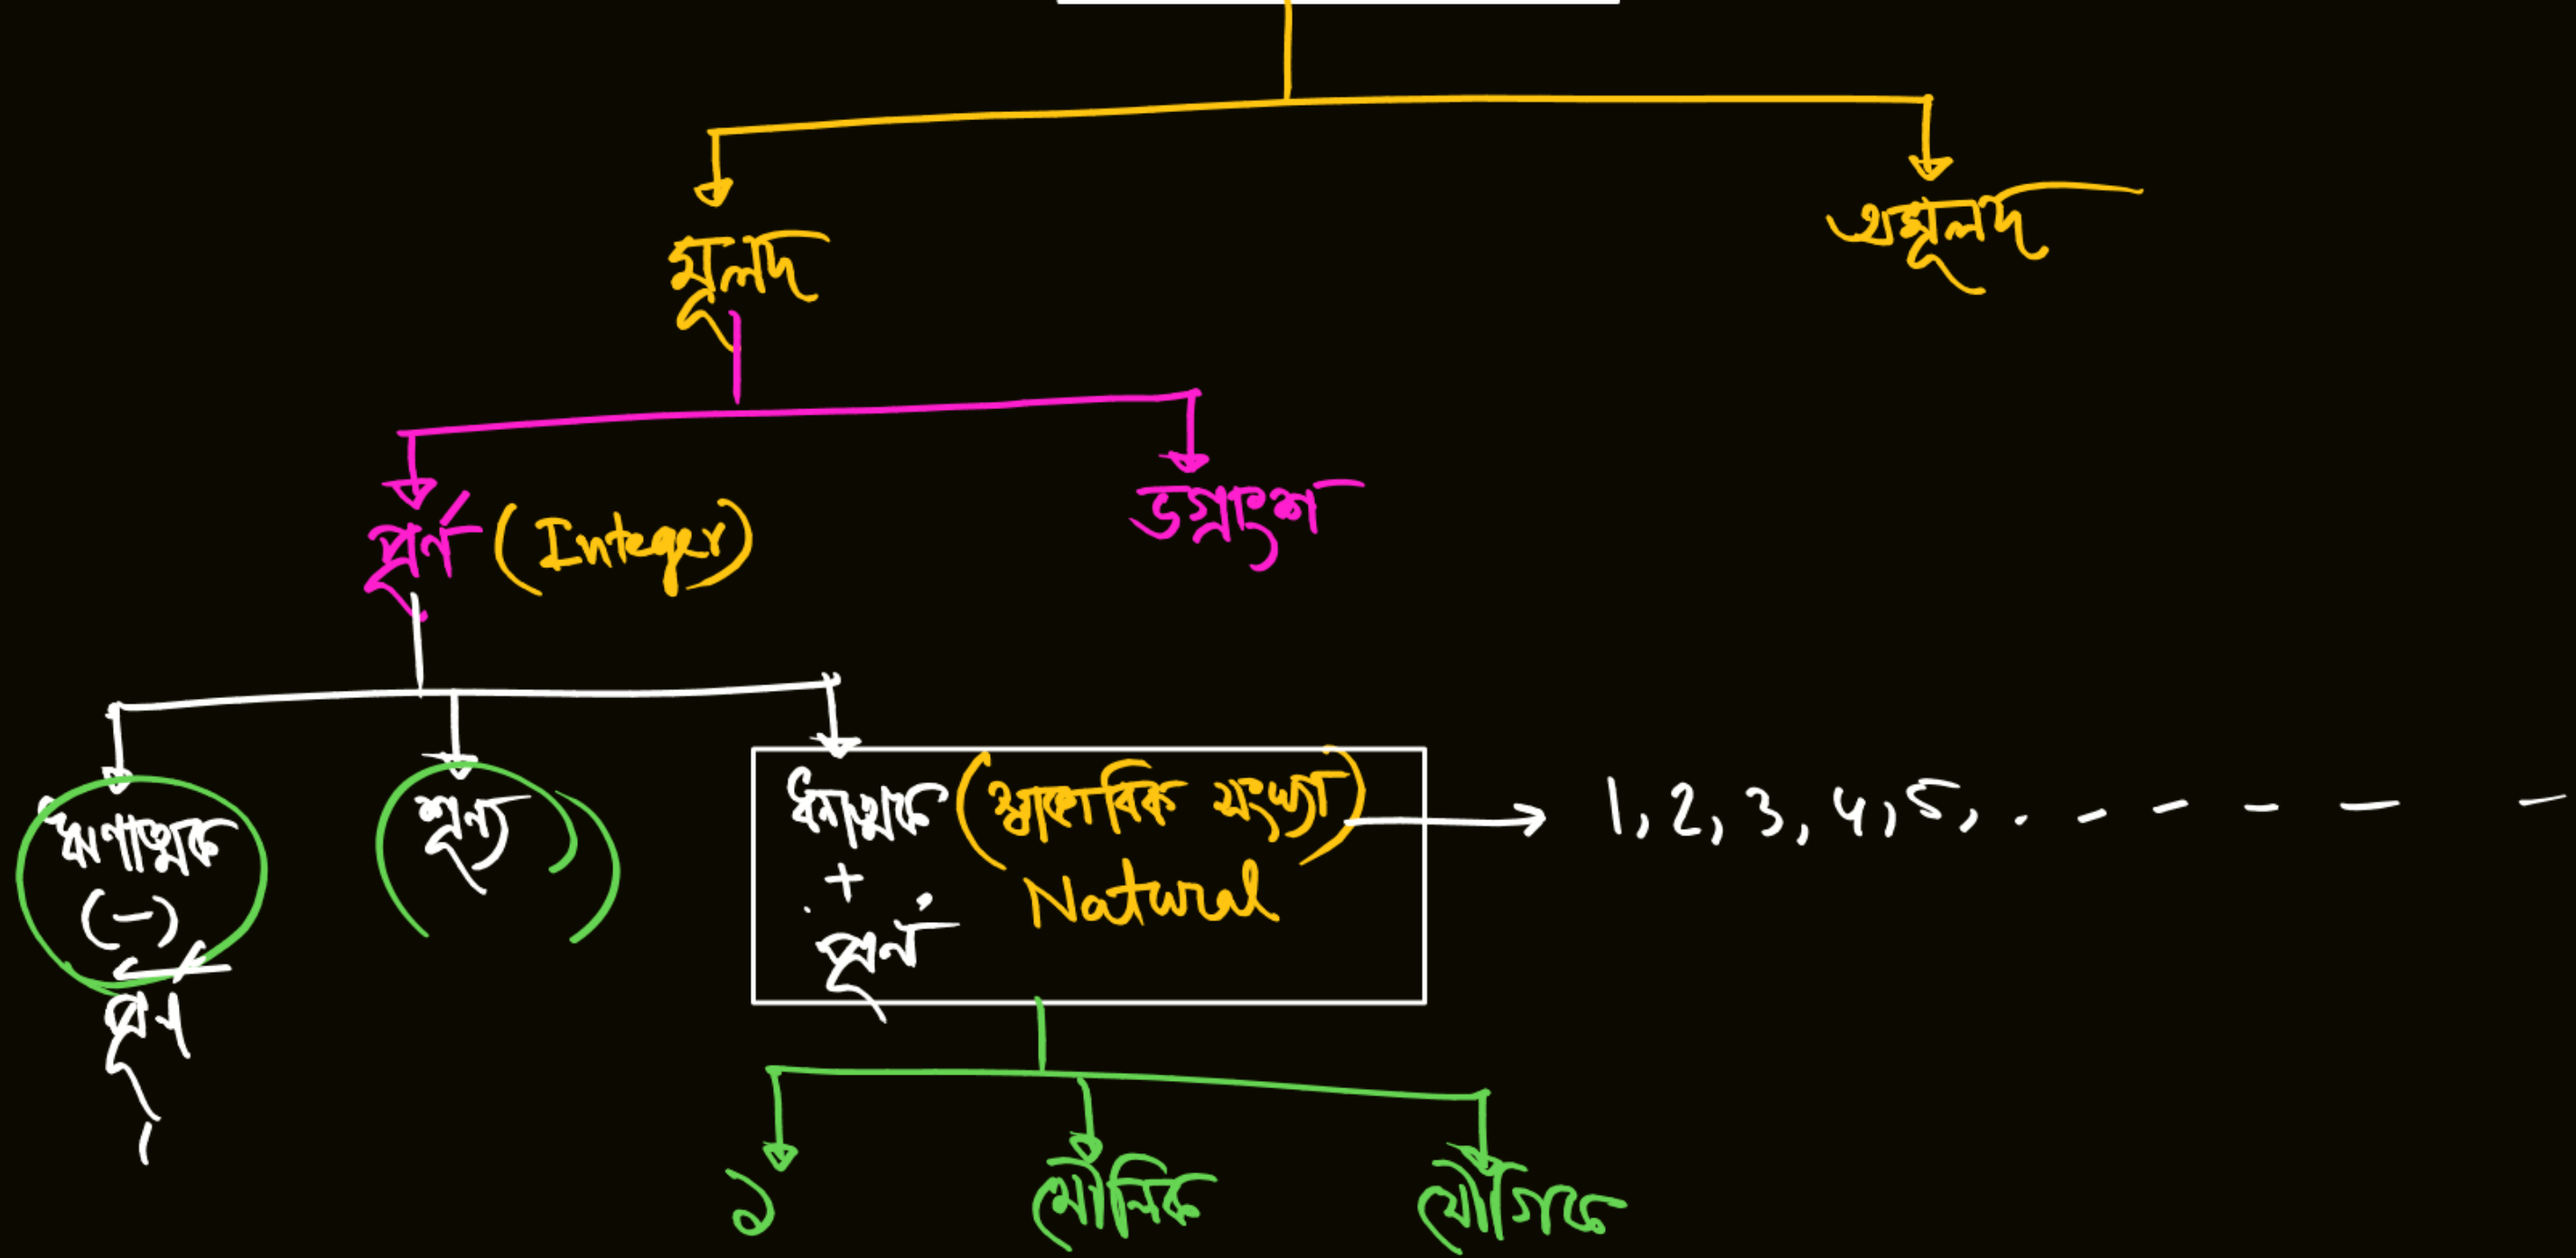 মূলদ
অমূলদ
পূর্ণ (Integer)
ভগ্নাংশ
ঋণাত্মক
(-)
পূর্ণ
শূন্য
ধনাত্মক (স্বাভাবিক সংখ্যা)
+
পূর্ণ
Natural
1, 2, 3, 4, 5, . - - - - -
১
মৌলিক
যৌগিক